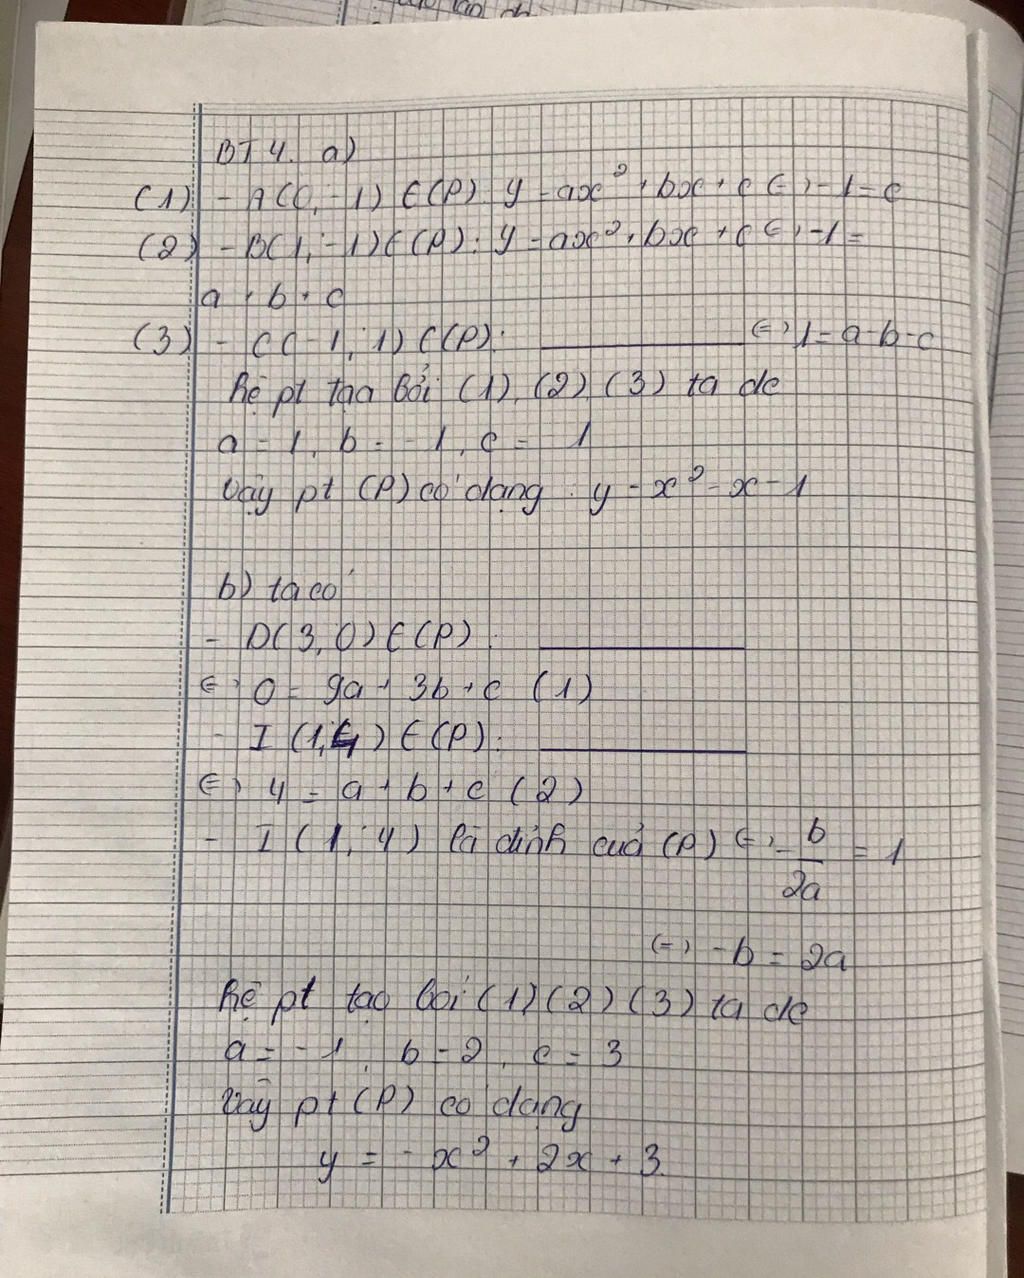 BT 4. a)
(1) - A(0, -1) ∈ (P) y = ax² + bx + c (=) -1 = c
(2) - B(1; -1) ∈ (P): y = ax² + bx + c (=) -1 =
a + b + c
(3) - C(-1; 1) ∈ (P): ________ (=) 1 = a - b - c
Hệ pt tạo bởi (1), (2), (3) ta dc
a = 1, b = -1, c = 1
Vậy pt (P) có dạng : y = x² - x - 1
b) ta có
- D(3, 0) ∈ (P) : ________
(=) 0 = 9a + 3b + c (1)
- I (1, 4) ∈ (P): ________
(=) 4 = a + b + c (2)
- I (1; 4) là đỉnh của (P) (=) -b/2a = 1
(=) -b = 2a
Hệ pt tạo bởi (1) (2) (3) ta dc
a = -1, b = 2, c = 3
Vậy pt (P) có dạng
y = -x² + 2x + 3.